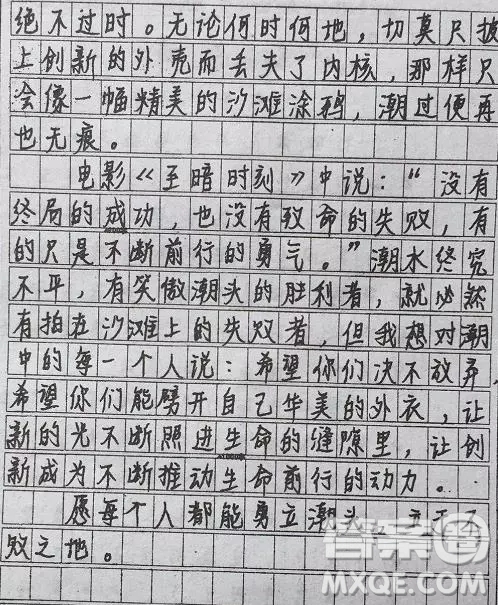 绝不过时。无论何时何地，切莫只披
上创新的外壳而丢失了内核，那样只
会像一幅精美的沙滩涂鸦，潮过便再
也无痕。
电影《至暗时刻》中说：“没有
终局的成功，也没有致命的失败，有
的只是不断前行的勇气。”潮水终究
不平，有笑傲潮头的胜利者，就必然
有拍在沙滩上的失败者，但我想对潮
中的每一个人说：希望你们决不放弃，
希望你们能劈开自己华美的外衣，让
新的光不断照进生命的缝隙里，让创
新成为不断推动生命前行的动力。
愿每个人都能勇立潮头，立于不
败之地。
答案圈
MXQE.COM